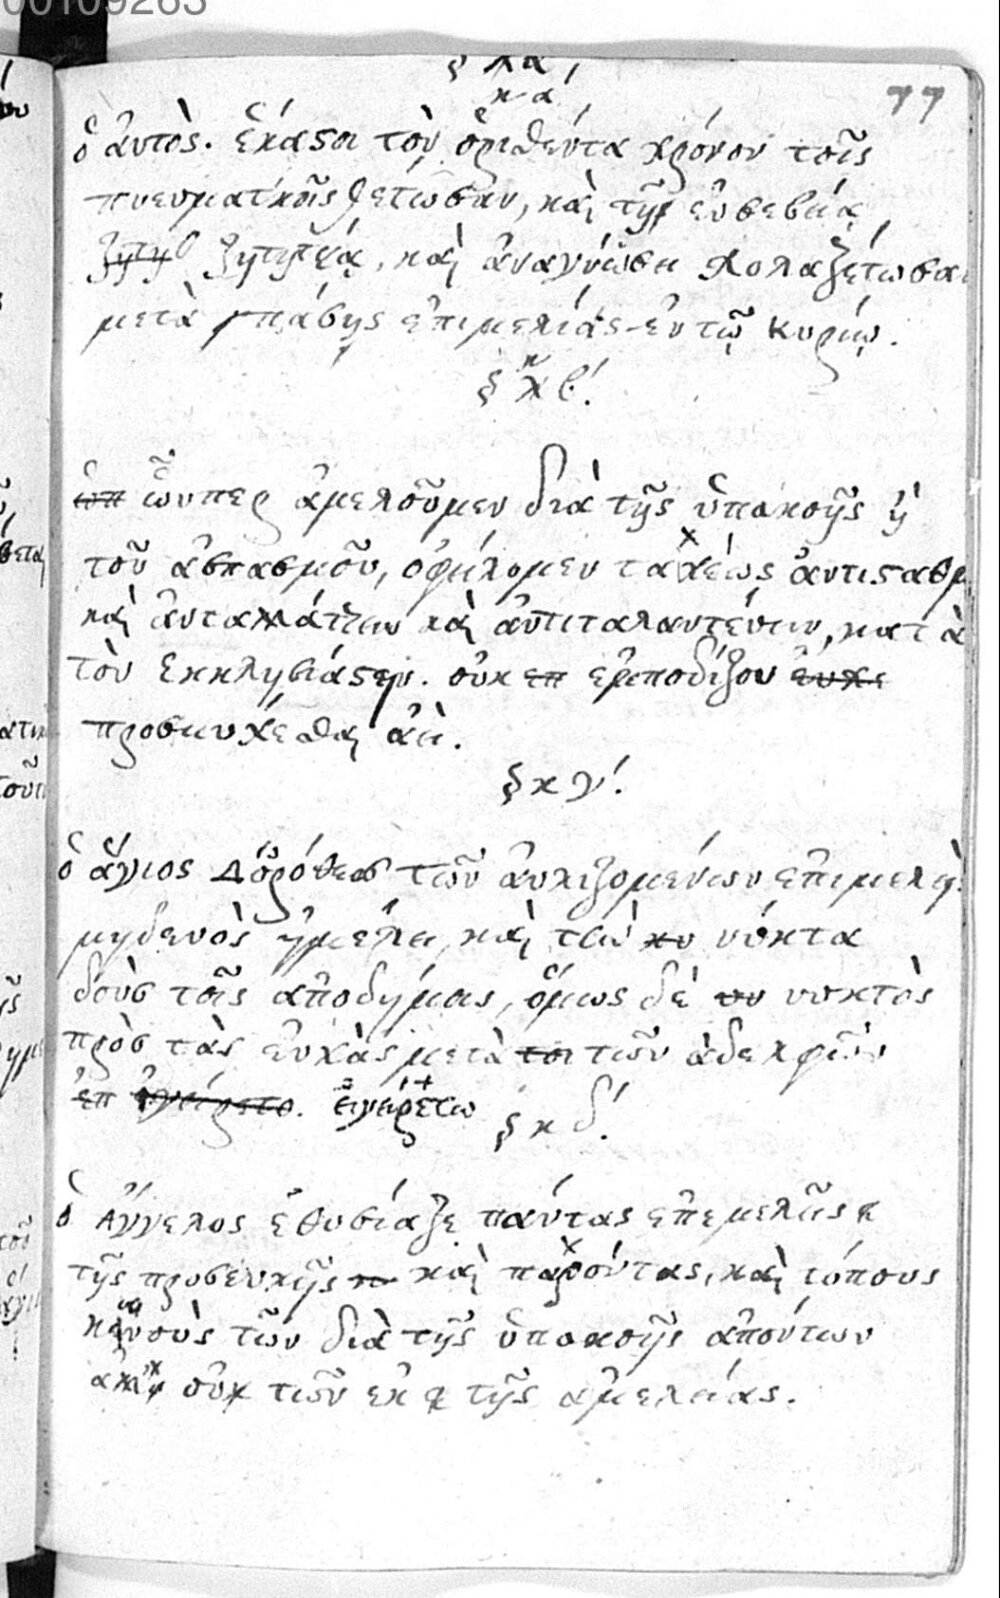 00109263
ξ λα΄
77
κα΄
ὁ ἀυτὸς. ἑκάςοι τὸν ὁριθέντα χρόνον τοῖς
πνευματικοῖς θετώσαν, καὶ τῇ ἐυσεβείᾳ
ζητη ζητητέᾳ, καὶ ἀναγνώσει σχολαζέτωσαν
μετὰ πάσης ἐπιμελείας ἐν τῷ Κυρίῳ.
ξ κβ΄.
ὧνπερ ἀμελοῦμεν διὰ τῆς ὑπακοῆς ἢ
τοῦ ἀσπασμοῦ, ὀφείλομεν ταχέως ἀντιςαθμ
καὶ ἀνταλλάττειν καὶ ἀντιταλαντέυειν, κατὰ
τὸν Εκκλησιάςην. οὐκ επ εμποδίζου ἐυχε
προσευχέσθαι ἀεὶ.
ξ κγ΄.
ὁ ἅγιος Δορόθεος τῶν ἀυλιζομένων επιμελη
μηδενὸς ἠμέλει, καὶ τὴν νύκτα
δοὺς τοῖς αποδημίαις, ὅμως δὲ νυκτὸς
πρὸς τὰς ἐυχὰς μετὰ τοι τῶν ἀδελφῶν
ἐπ ἠγείρετο. ἐγειρέτω
ξ κδ΄.
ὁ Αγγελος ἐθυσίαζε πάντας επιμελεῖς
τῆς προσευχῆς καὶ παρόντας, καὶ τόπους
κενοὺς τῶν διὰ τῆς ὑπακοῆς απόντων
αλλ' οὐχ τῶν εκ τῆς αμελείας.